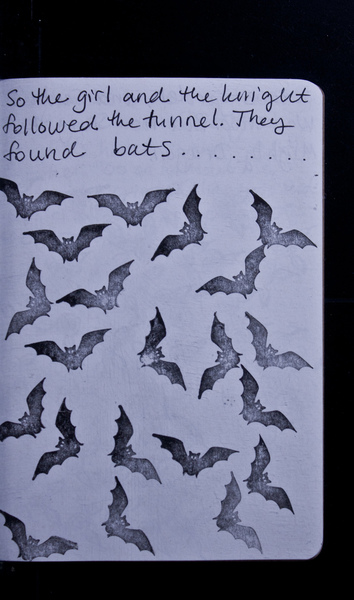 So the girl and the knight
followed the tunnel. They
found bats........